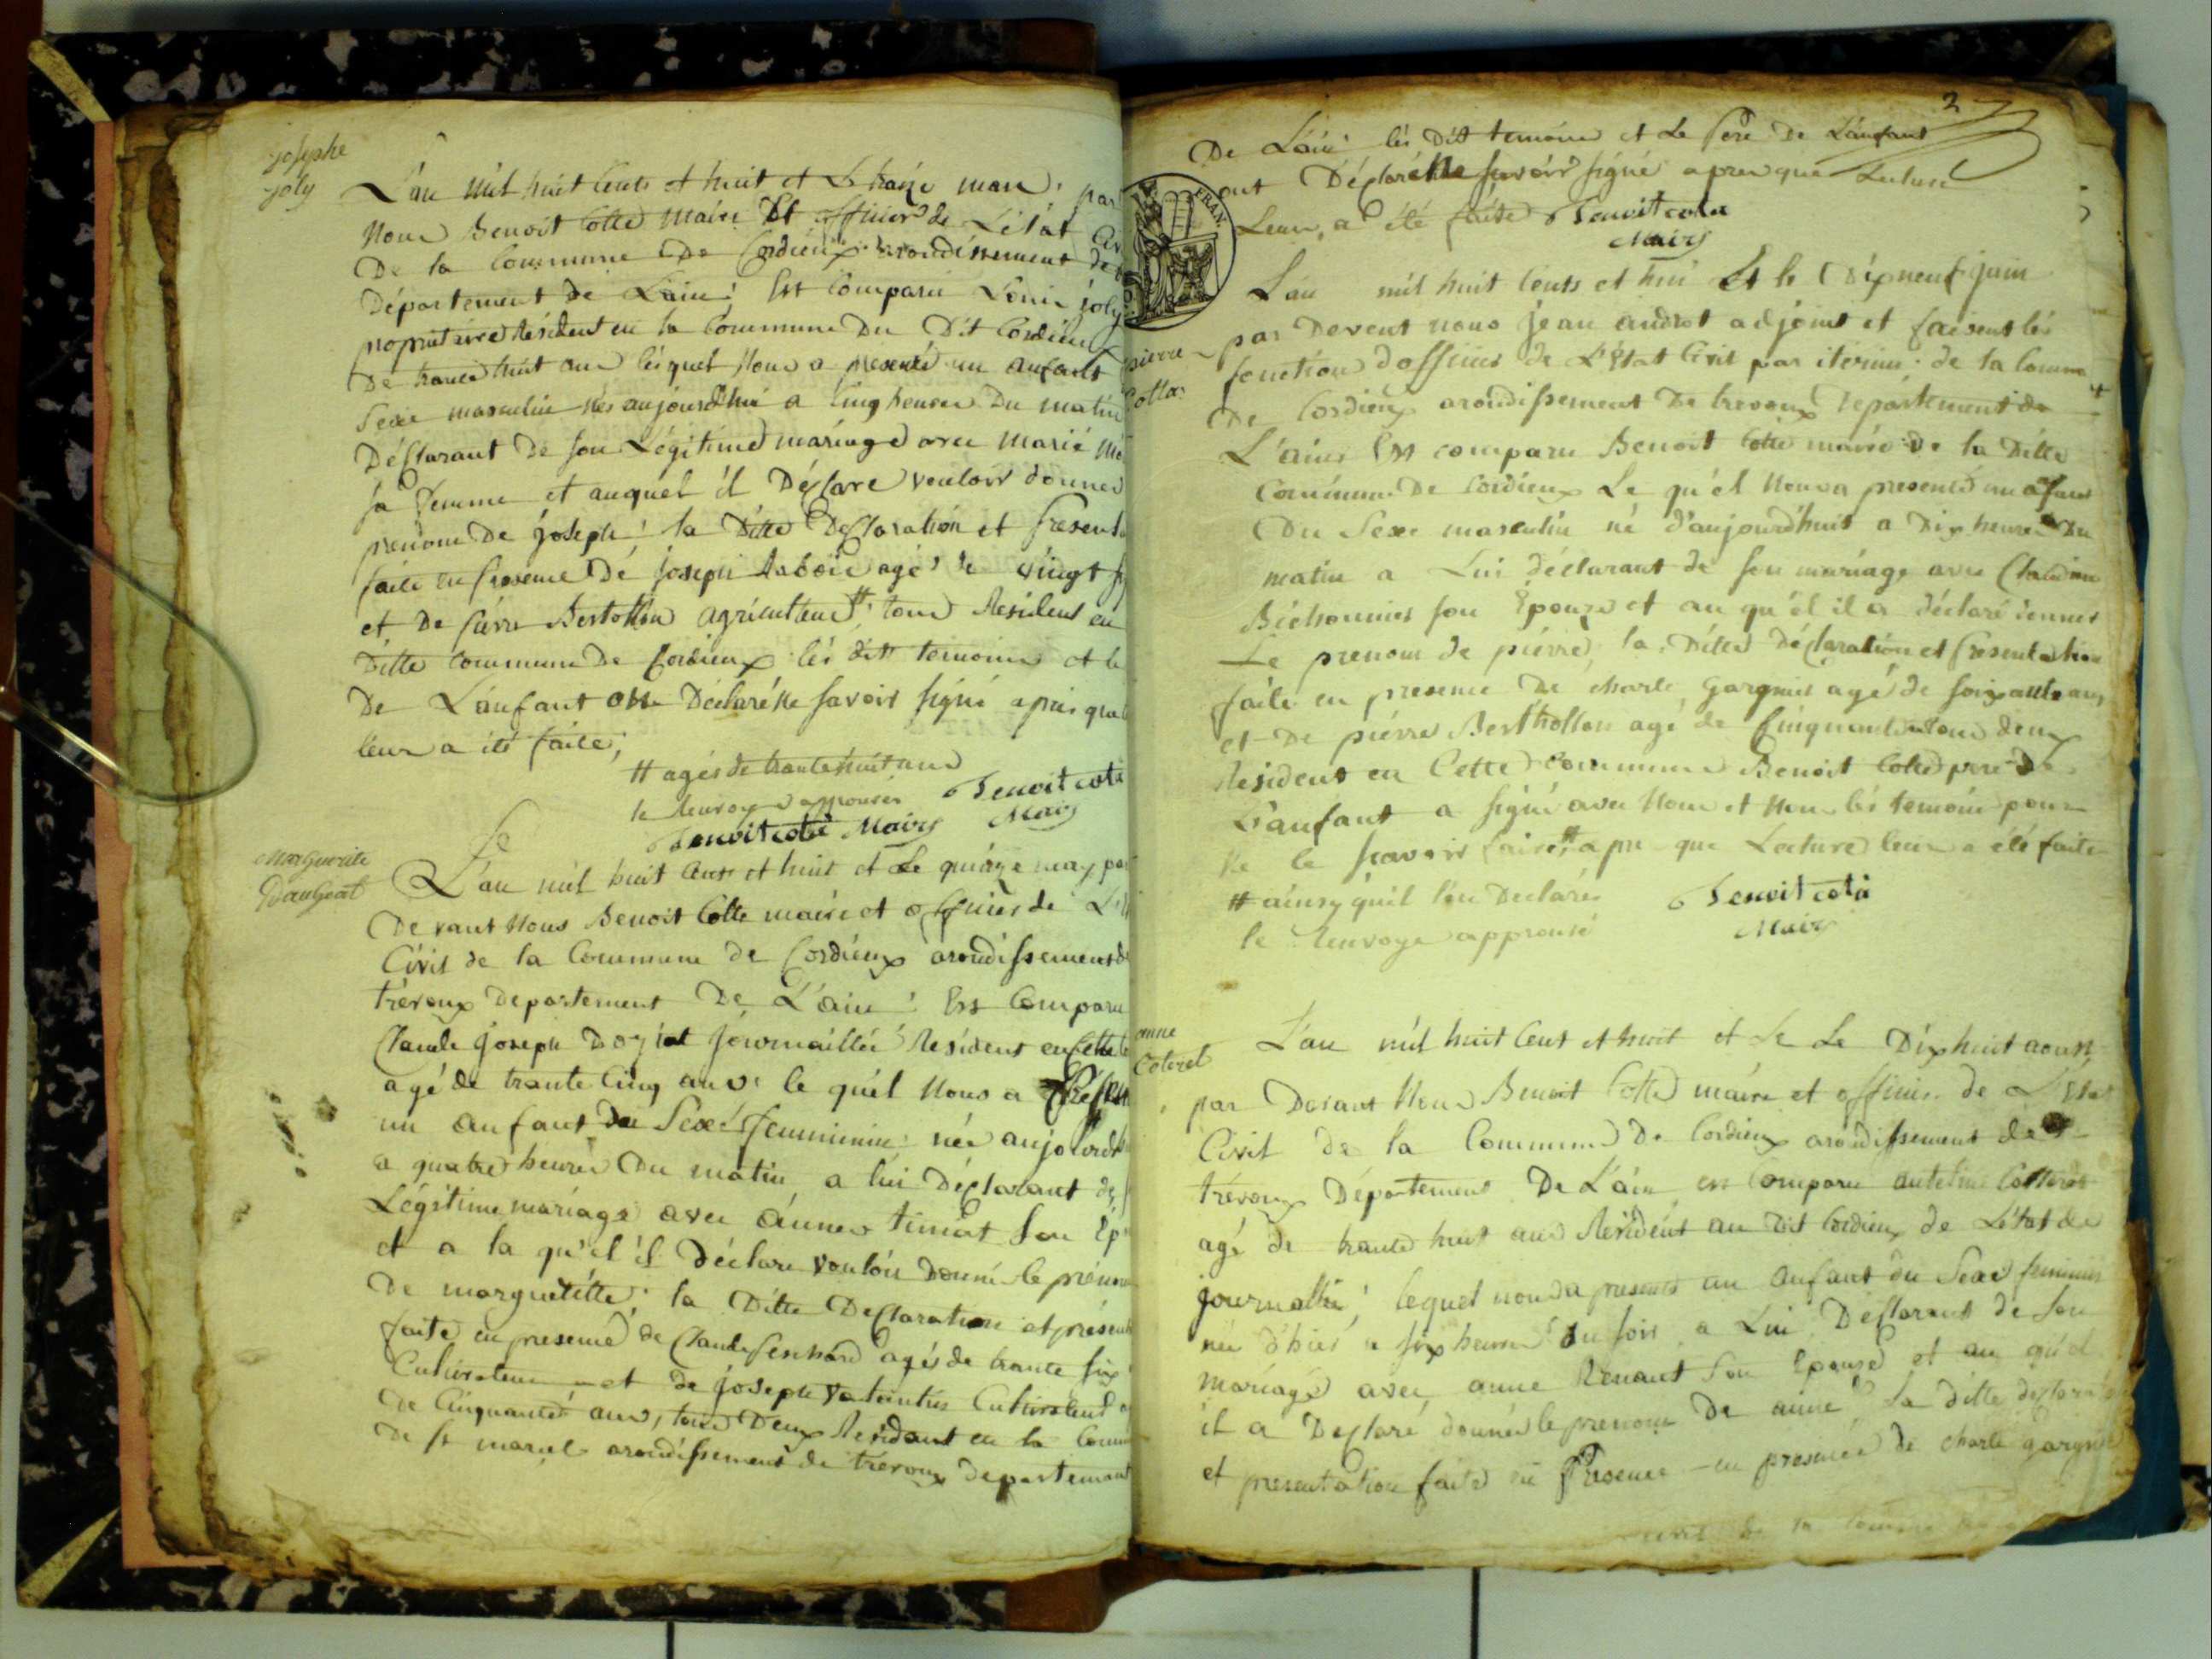 josephe
joly
L'an mil huit Cents et huit et Le traize mars, par
Nous Benoit Cotte maire Et officier de L'état Civ
De la Commune De Cordieux arondissement de
Département de Lain; Est Comparu Louis joly
propriétaire Résident en la Commune Du Dit Cordieux
De trante huit ans lesquel Nous a presenté un anfants
Sexe masculin nés aujourd'hui a Cinq heures Du matin
Déclarant De son Légitime mariage avec Marie
sa femme et auquel il Déclare vouloir donner
prenom De joseph; la Ditte Declaration et presenta
faite en presence De joseph agé de vingt
et De pierre Bertollon agriculteur # tous Resident en
Ditte Commune De Cordieux les dits temoins et le
De L'anfant ont Déclaré Ne savoir signé apres que
leur a été faite;
# agés de trante huit ans
le Renvoye approuvés Benoit coté
Benoit coté Maire Maire
Marguerite
L'an mil huit Cents et huit et Le quinze may par
Devant Nous Benoit Cotte maire et officier de L'
Civil de la Commune de Cordieux arondissement de
trévoux Departement De L'ain; Est Comparu
Claude joseph journaillié Resident en Cette
agé de trante Cinq ans le quel Nous a Présen
un anfant du Sexe femminin née aujourd
a quatre heures Du matin a lui Déclarant de
Légitime mariage avec anne son Ep
et a la qu'el il Déclare vouloir donné le prénom
De; la Ditte Declaration et présen
faite en presence de Claude agés de trante six
Cultivateur et de joseph Cultivateur
De Cinquantes ans, tous Deux Residant en la Comm
De st marcel arondissement de trevoux departemant
2
De Lain les Dits temoins et Le Pere De L'anfant
ont Déclaré Ne savoir signé apres que Lecture
Leur a été faite Benoit coté
Maire
pierre
Cotte
L'an mil huit Cents et hui Et le Dixneuf juin
par Devent nous jean andrct adjoint et faisent les
fonction d'officier de L'état Civil par iterim de la Comm
De Cordieux arondissement De trevoux Departement de
L'ain Est comparu Benoit Cotte maire de la Ditte
Commune De Cordieux Le qu'el Nous a presenté un afant
Du Sexe masculin né d'aujourd'huit a Dix heures Du
matin a Lui déclarant de son mariage avec Claudine
Bichonnier son Epouze et au qu'el il a déclaré donner
Le prenom de pierre; la Ditte Declaration et Presentation
faite en presence De charle Gargnier agé de soixante ans
et De pierre Berthollon agé de Cinquante tous deux
Resident en Cette Commune Benoit Cotte pere De
L'anfant a signé avec Nous et Non les temoin pour
Ne le scavoir faire # apre que Lecture leur a été faite
# ainsy qu'il l'on Declarés Benoit coté
le Renvoye approuvé Maire
anne
Coterel
L'an mil huit Cent et huit et Le Le Dixhuit aoust
par Devant Nous Benoit Cotte maire et officier de L'Etat
Civil de la Commune De Cordieux arondissement de
trévoux Département De L'ain est Comparu antelme Cotterel
agé de trante huit ans Resident au Dit Cordieux de L'état de
journallié; lequel nous a presenté un anfant du Sexe feminin
née d'hier a six heures Du soir a Lui Déclarant de son
mariage avec anne Renant son Epouze et au qu'el
il a Declaré donner le prenom De anne; La ditte declarat
et presentation faite en Presence en presence de charle gargnie